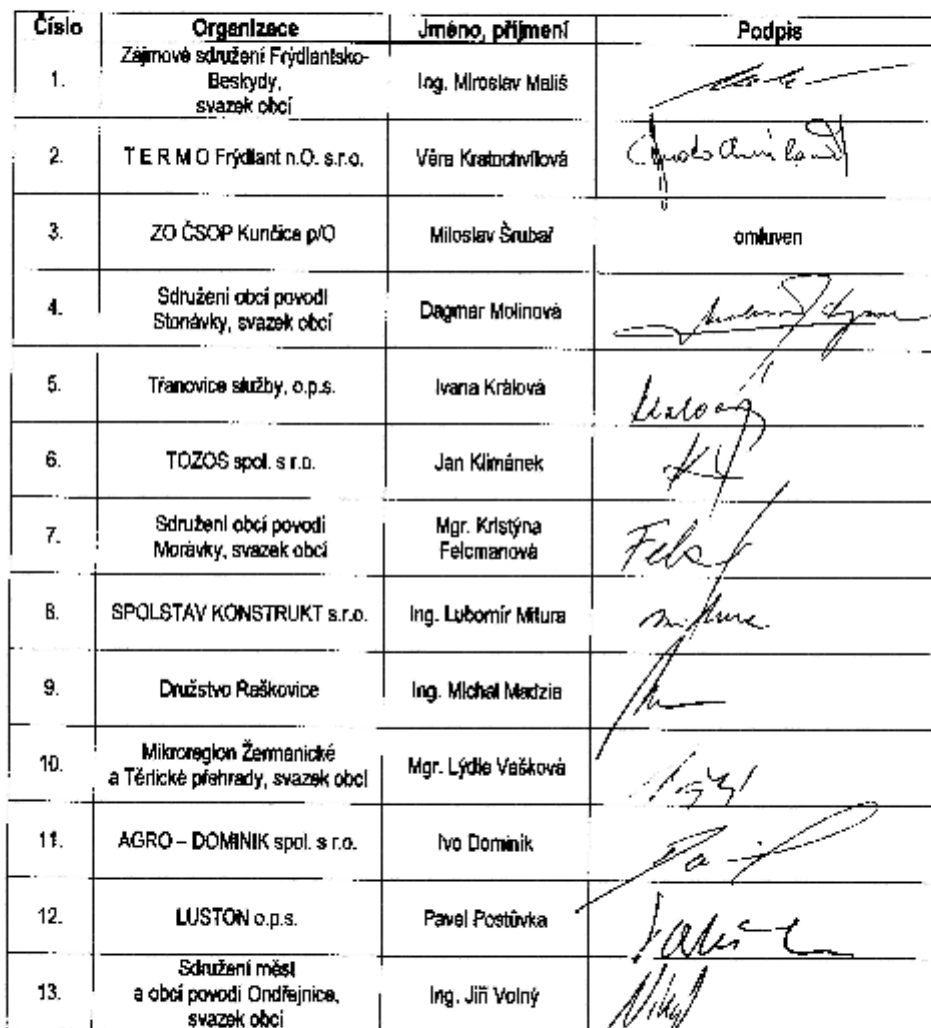 Číslo Organizace Jméno, příjmení Podpis
1. Zájmové sdružení Frýdlantsko-
Beskydy,
svazek obcí Ing. Miroslav Mališ
2. T E R M O Frýdlant n.O. s.r.o. Věra Kratochvílová
3. ZO ČSOP Kunčice p/O Miloslav Šrubař omluven
4. Sdružení obcí povodí
Stonávky, svazek obcí Dagmar Molinová
5. Třanovice služby, o.p.s. Ivana Králová
6. TOZOS spol. s r.o. Jan Klimánek
7. Sdružení obcí povodí
Morávky, svazek obcí Mgr. Kristýna
Felcmanová
8. SPOLSTAV KONSTRUKT s.r.o. Ing. Lubomír Mitura
9. Družstvo Raškovice Ing. Michal Madzia
10. Mikroregion Žermanické
a Těrlické přehrady, svazek obcí Mgr. Lýdie Vašková
11. AGRO – DOMINIK spol. s r.o. Ivo Dominik
12. LUSTON o.p.s. Pavel Postůvka
13. Sdružení měst
a obcí povodí Ondřejnice,
svazek obcí Ing. Jiří Volný